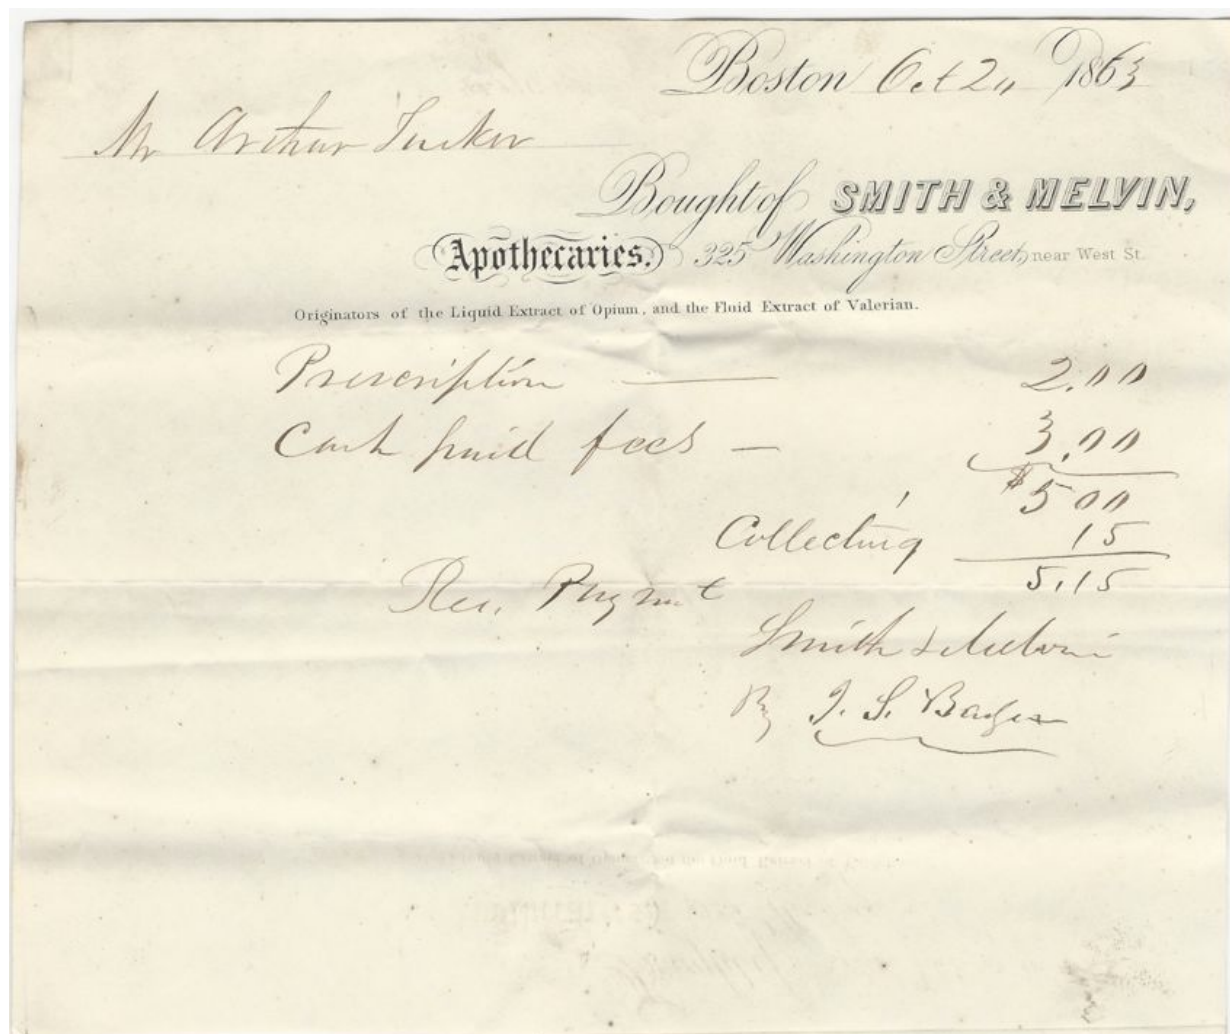 Boston Oct 2 1863
Mr Arthur Tucker
Bought of SMITH & MELVIN,
Apothecaries. 325 Washington Street, near West St.
Originators of the Liquid Extract of Opium, and the Fluid Extract of Valerian.
Prescription — 2.00
Cash paid fees — 3.00
$5 00
Collecting 15
5.15
Rec. Paymnt
Smith & Melvin
By J. S.